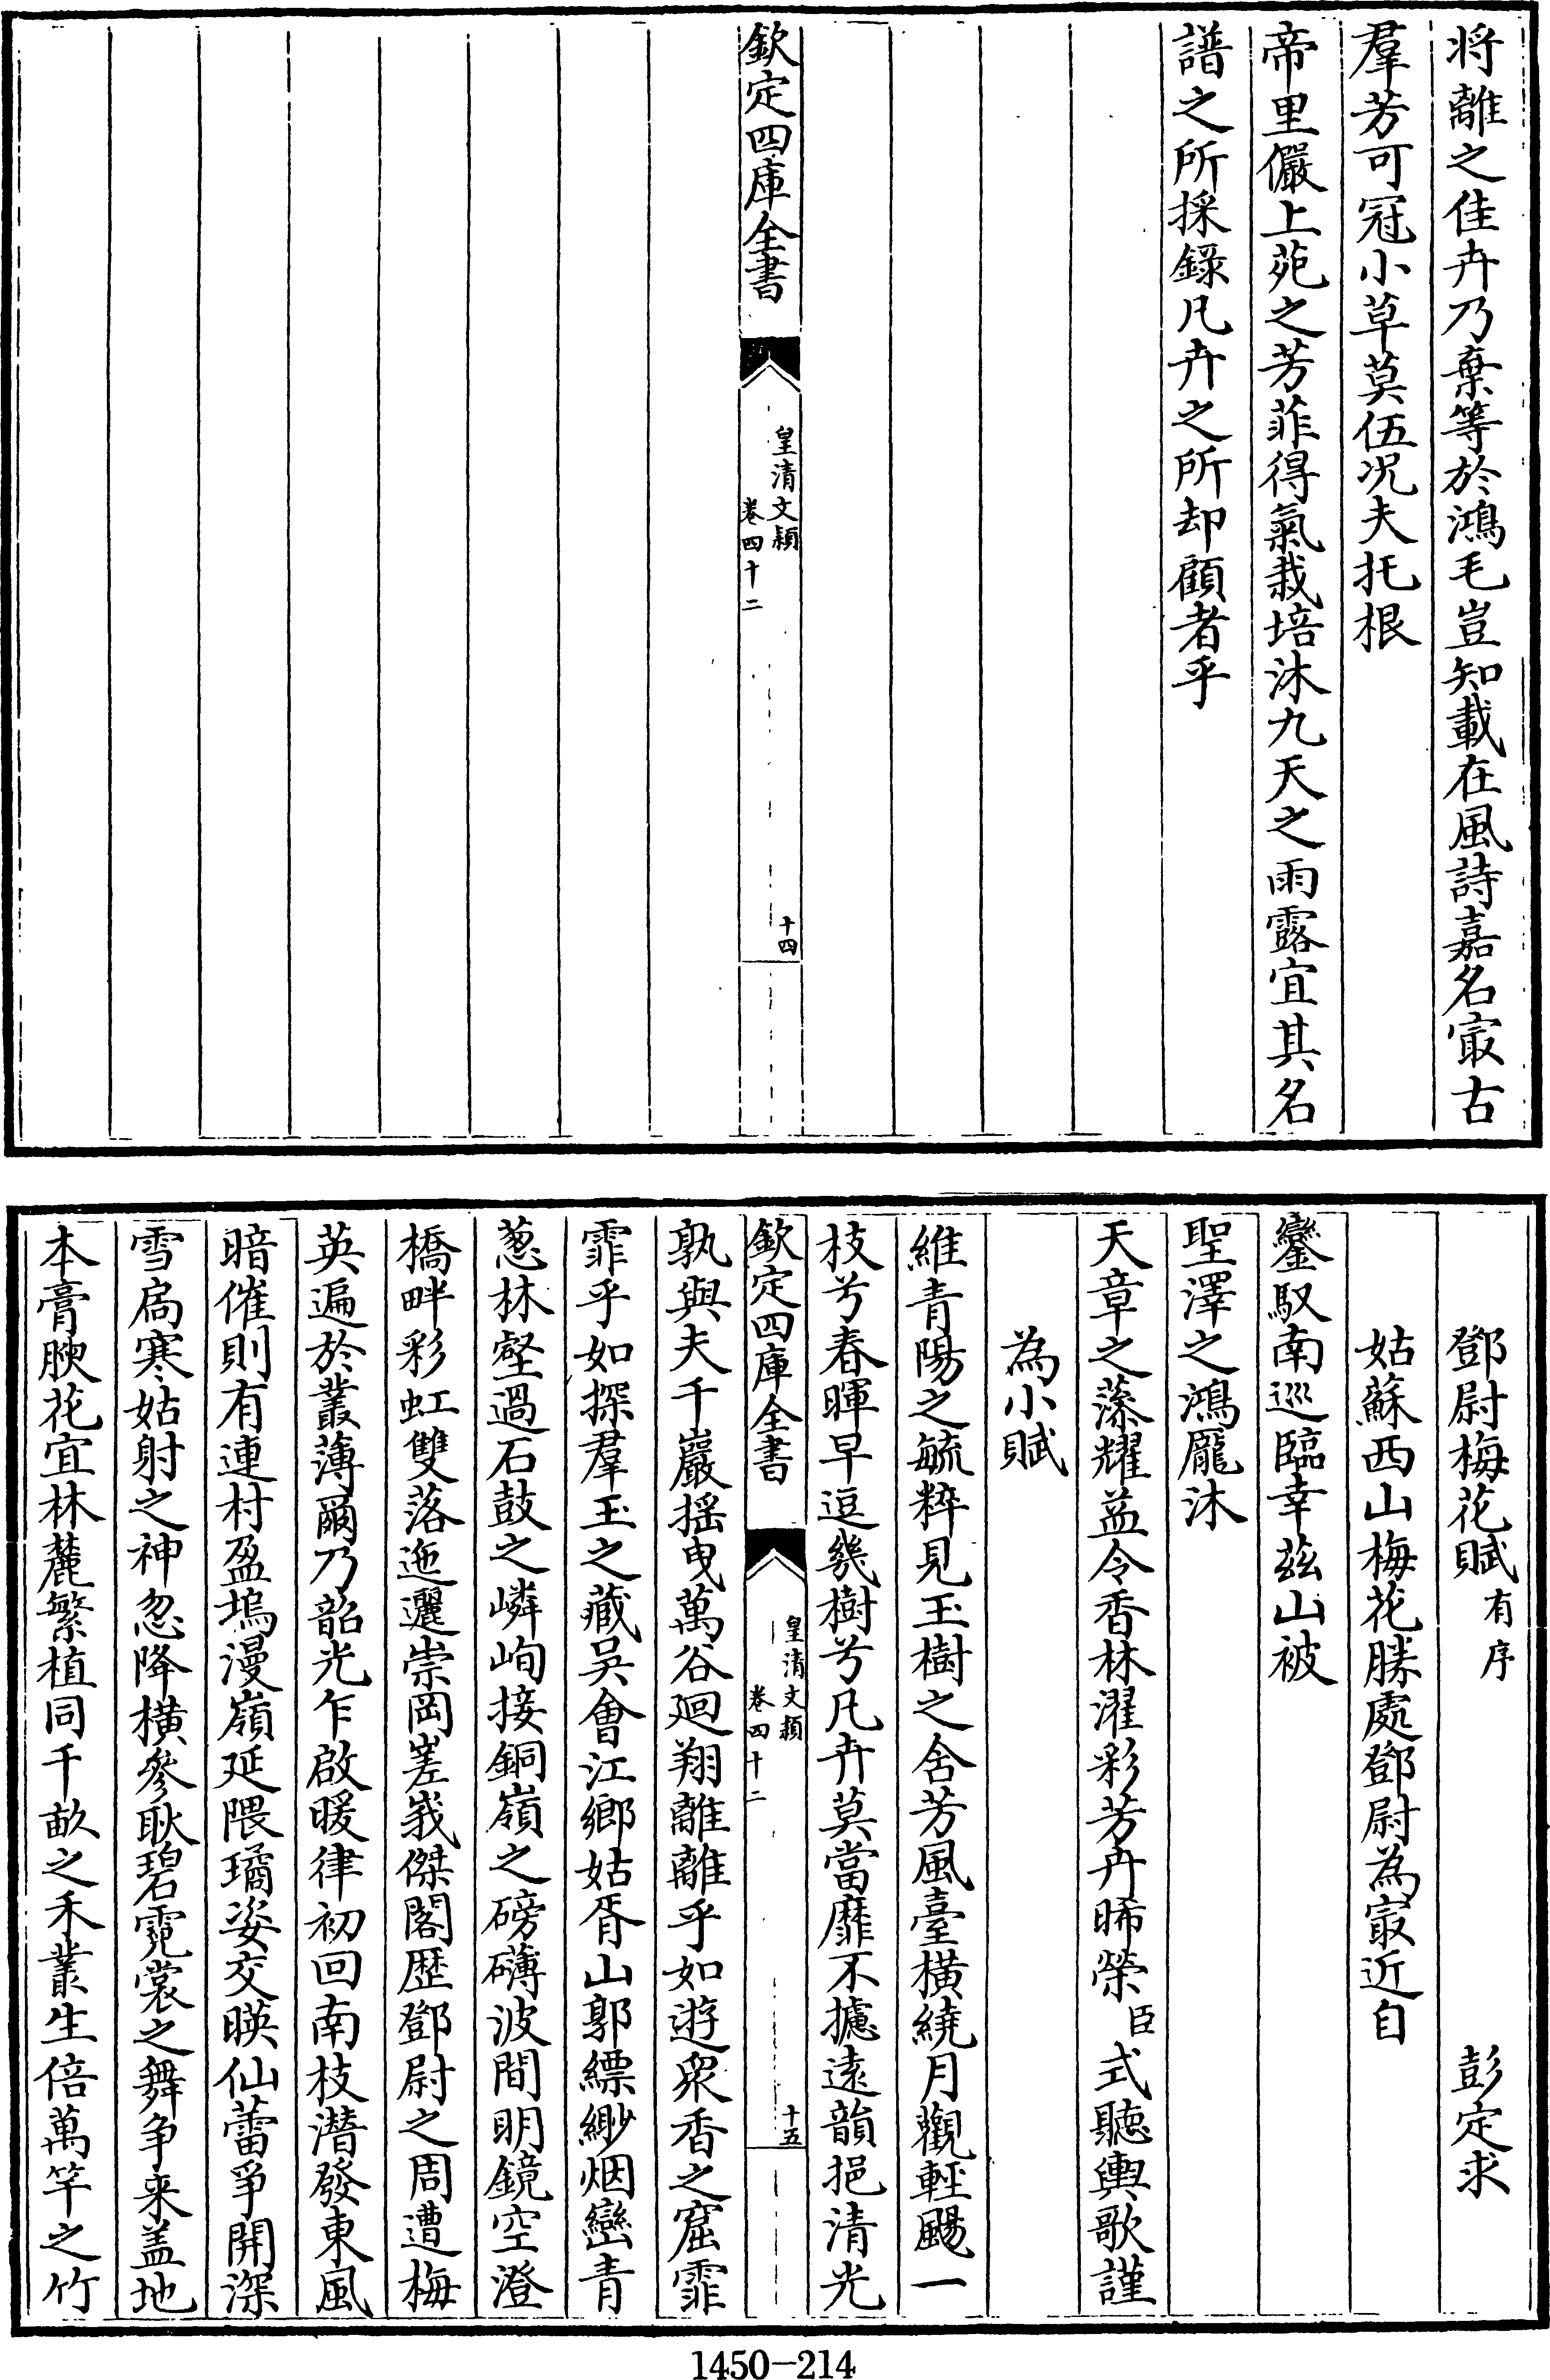 将離之佳卉乃棄等於鴻毛豈知載在風詩嘉名㝡古
羣芳可冠小草莫伍况夫托根
帝里儼上苑之芳菲得氣栽培沐九天之雨露宜其名
譜之所採錄凡卉之所却顧者乎
欽定四庫全書
皇清文穎
卷四十二
十四
鄧尉梅花賦有序 彭定求
姑蘇西山梅花勝處鄧尉為㝡近自
鑾馭南巡臨幸兹山被
聖澤之鴻龐沐
天章之藻耀益令香林濯彩芳卉晞榮臣式聽輿歌謹
為小賦
維青陽之毓粹見玉樹之舍芳風臺橫繞月觀輕颺一
枝兮春暉早逗幾樹兮凡卉莫當靡不攄遠韻挹清光
欽定四庫全書
皇清文穎
卷四十二
十五
孰與夫千巖摇曳萬谷迴翔離離乎如遊衆香之窟霏
霏乎如探羣玉之藏吳會江鄉姑胥山郭縹緲烟巒青
葱林壑過石鼓之嶙峋接銅嶺之磅礴波間明鏡空澄
橋畔彩虹雙落迤邐崇岡嵳峩傑閣歴鄧尉之周遭梅
英遍於叢薄爾乃韶光乍啟暖律初回南枝潛發東風
暗催則有連村盈塢漫嶺延隈璚姿交暎仙蕾爭開深
雪扃寒姑射之神忽降橫參耿碧霓裳之舞争来盖地
本膏腴花宜林麓繁植同千畝之禾叢生倍萬竿之竹
1450-214